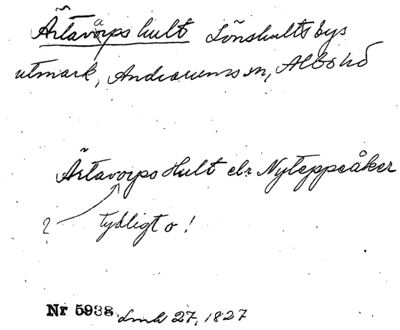 Ärtavårps hult Lönshults bys
utmark, Andrarums sn, Albo hd
Ärtavorps Hult elr Nyteppeåker
? tydligt o!
Nr 5938. Lmh 27, 1827